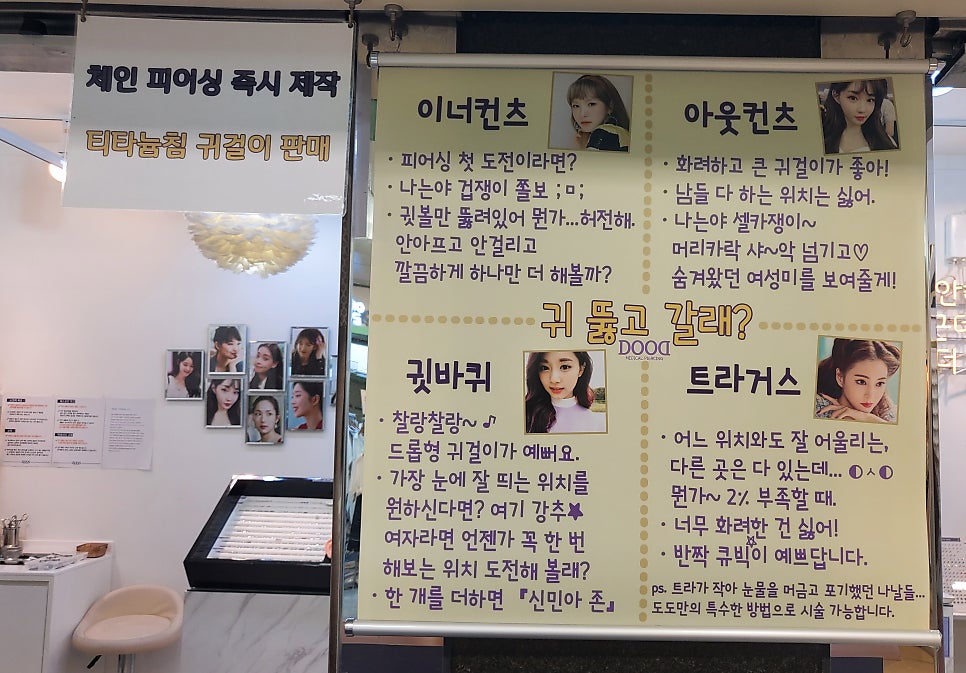 체인 피어싱 즉시 제작
티타늄침 귀걸이 판매
이너컨츠
· 피어싱 첫 도전이라면?
· 나는야 겁쟁이 쫄보 ;ㅁ;
· 귓볼만 뚫려있어 뭔가...허전해.
안아프고 안걸리고
깔끔하게 하나만 더 해볼까?
아웃컨츠
· 화려하고 큰 귀걸이가 좋아!
· 남들 다 하는 위치는 싫어.
· 나는야 셀카쟁이~
머리카락 샤~악 넘기고♡
숨겨왔던 여성미를 보여줄게!
귀 뚫고 갈래?
DOOD
MEDICAL PIERCING
귓바퀴
· 찰랑찰랑~♪
드롭형 귀걸이가 예뻐요.
· 가장 눈에 잘 띄는 위치를
원하신다면? 여기 강추★
여자라면 언젠가 꼭 한 번
해보는 위치 도전해 볼래?
· 한 개를 더하면 『신민아 존』
트라거스
· 어느 위치와도 잘 어울리는,
다른 곳은 다 있는데... ◐ㅅ◐
뭔가~ 2% 부족할 때.
· 너무 화려한 건 싫어!
· 반짝 큐빅☆이 예쁘답니다.
ps. 트라가 작아 눈물을 머금고 포기했던 나날들...
도도만의 특수한 방법으로 시술 가능합니다.